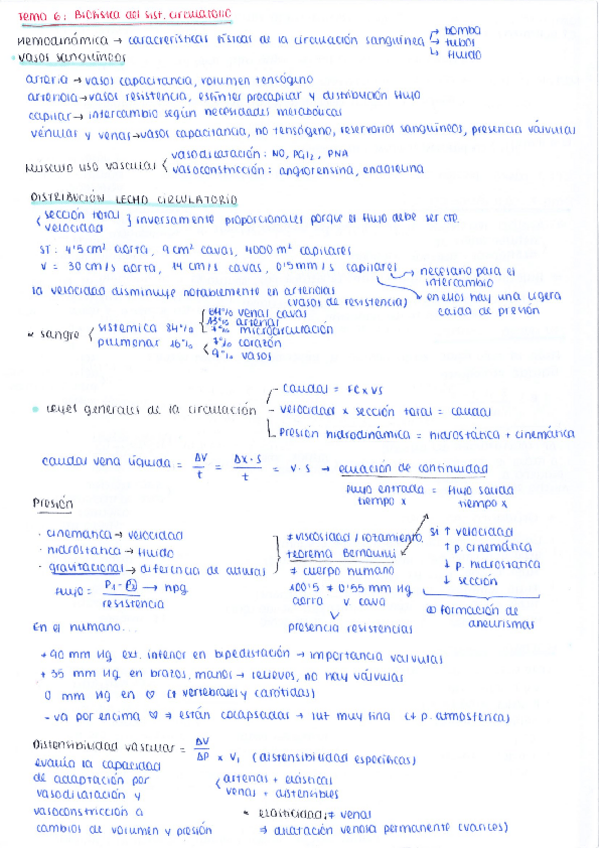 Tema 6: Biofísica del sist. circulatorio
Hemodinámica → características físicas de la circulación sanguínea → bomba
→ tubos
→ fluido
• vasos sanguíneos
arteria → vasos capacitancia, volumen tensógeno
arteriola → vasos resistencia, esfínter precapilar y distribución flujo
capilar → intercambio según necesidades metabólicas
vénulas y venas → vasos capacitancia, no tensógeno, reservorios sanguíneos, presencia válvulas
Músculo liso vascular { vasodilatación: NO, PGI2, PNA
vasoconstricción: angiotensina, endotelina
DISTRIBUCIÓN LECHO CIRCULATORIO
{ sección total
velocidad } inversamente proporcionales porque el flujo debe ser cte.
ST: 4'5 cm² aorta, 9 cm² cavas, 4000 m² capilares
V = 30 cm/s aorta, 14 cm/s cavas, 0'5 mm/s capilares → necesario para el
intercambio
→ en ellos hay una ligera
caída de presión
la velocidad disminuye notablemente en arteriolas
(vasos de resistencia)
* sangre { sistémica 84% { 64% venal cavas
13% arterial
7% microcirculación
pulmonar 16% { 7% corazón
9% vasos
• Leyes generales de la circulación
- caudal = FC x VS
- velocidad x sección total = caudal
Presión hidrodinámica = hidrostática + cinemática
caudal vena líquida = ΔV/t = ΔX · S/t = V · S → ecuación de continuidad
flujo entrada = flujo salida
tiempo x tiempo x
Presión
· cinemática → velocidad
· hidrostática → fluido
· gravitacional → diferencia de alturas
flujo = P1 - P2 / resistencia → hpg
≠ viscosidad / rozamiento
teorema Bernoulli
≠ cuerpo humano
100'5 ≠ 0'55 mm Hg
aorta v cava
presencia resistencias
si ↑ velocidad
↑ p. cinemática
↓ p. hidrostática
↓ sección
formación de
aneurismas
En el humano...
+ 90 mm Hg ext. inferior en bipedestación → importancia valvulas
+ 35 mm Hg en brazos, manos → relieves, no hay válvulas
0 mm Hg en ♡ (+ vertebrales y carótidas)
- va por encima ♡ ⇒ están colapsadas → luz muy fina (+ p. atmosférica)
Distensibilidad vascular = ΔV / ΔP x Vi (distensibilidad específicas)
evalúa la capacidad
de adaptación por
vasodilatación y
vasoconstricción a
cambios de volumen y presión
{ arterias + elástica
venas + distensibles
* elasticidad: ≠ venal
⇒ dilatación venosa permanente (varices)